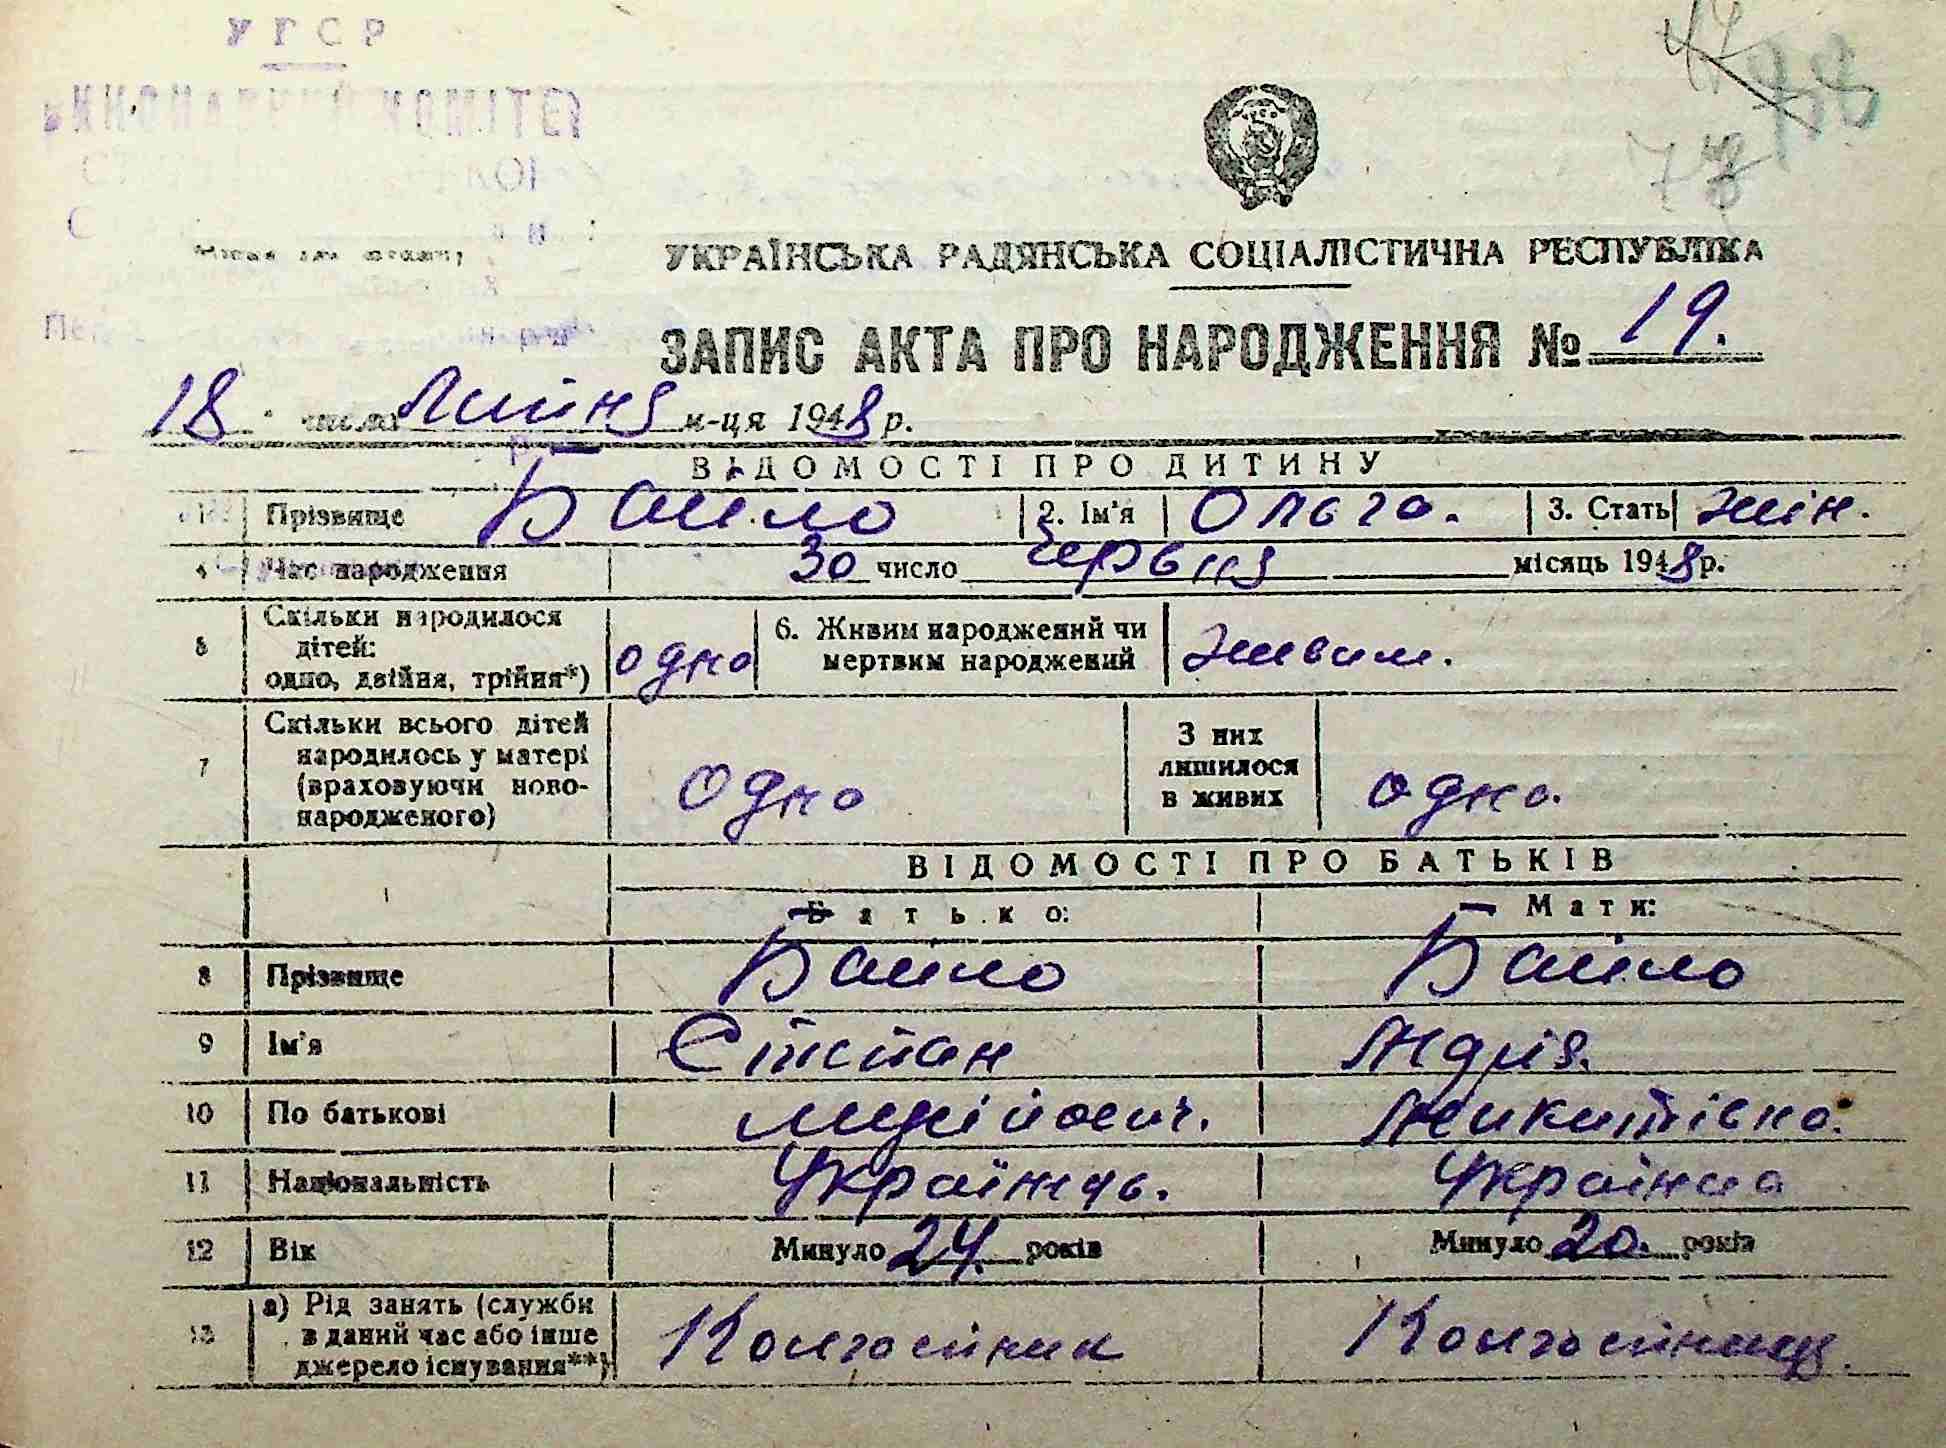 У Р С Р
ВИКОНАВЧИЙ КОМІТЕТ
УКРАЇНСЬКА РАДЯНСЬКА СОЦІАЛІСТИЧНА РЕСПУБЛІКА
ЗАПИС АКТА ПРО НАРОДЖЕННЯ № 19.
18 числа липня м-ця 1948 р.
ВІДОМОСТІ ПРО ДИТИНУ
1 Прізвище Байло 2. Ім'я Ольга. 3. Стать жін.
4 Час народження 30 число червня місяць 1948 р.
5 Скільки народилося
дітей:
одно, двійня, трійня*) одно 6. Живим народжений чи
мертвим народжений живим.
7 Скільки всього дітей
народилось у матері
(враховуючи ново-
народженого) одно З них
лишилося
в живих одно.
ВІДОМОСТІ ПРО БАТЬКІВ
Батько: Мати:
8 Прізвище Байло Байло
9 Ім'я Степан
10 По батькові Микитівна.
11 Національність Українць. Українка
12 Вік Минуло 24. років Минуло 20. років
13 а) Рід занять (служби
в даний час або інше
джерело існування**) Колгоспник Колгоспниця.